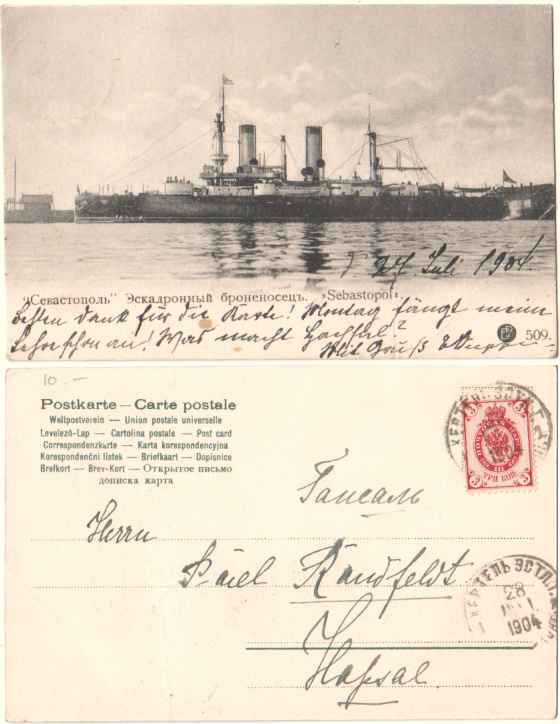 d 27 Juli 1904.
"Севастополь" Эскадронный броненосецъ. „Sebastopol".
Besten Dank für die Karte! Montag fängt mein
an! Was macht Hapsal?
509.
Mit Gruß
10 —
Postkarte — Carte postale
Weltpostverein — Union postale universelle
Levelező-Lap — Cartolina postale — Post card
Correspondenzkarte — Karta korespondencyjna
Korespondenční lístek — Briefkaart — Dopisnice
Brefkort — Brev-Kort — Открытое письмо
дописна карта
1904
Гапсаль
Herrn
Päiel Randfeldt
28
1904
Hapsal.